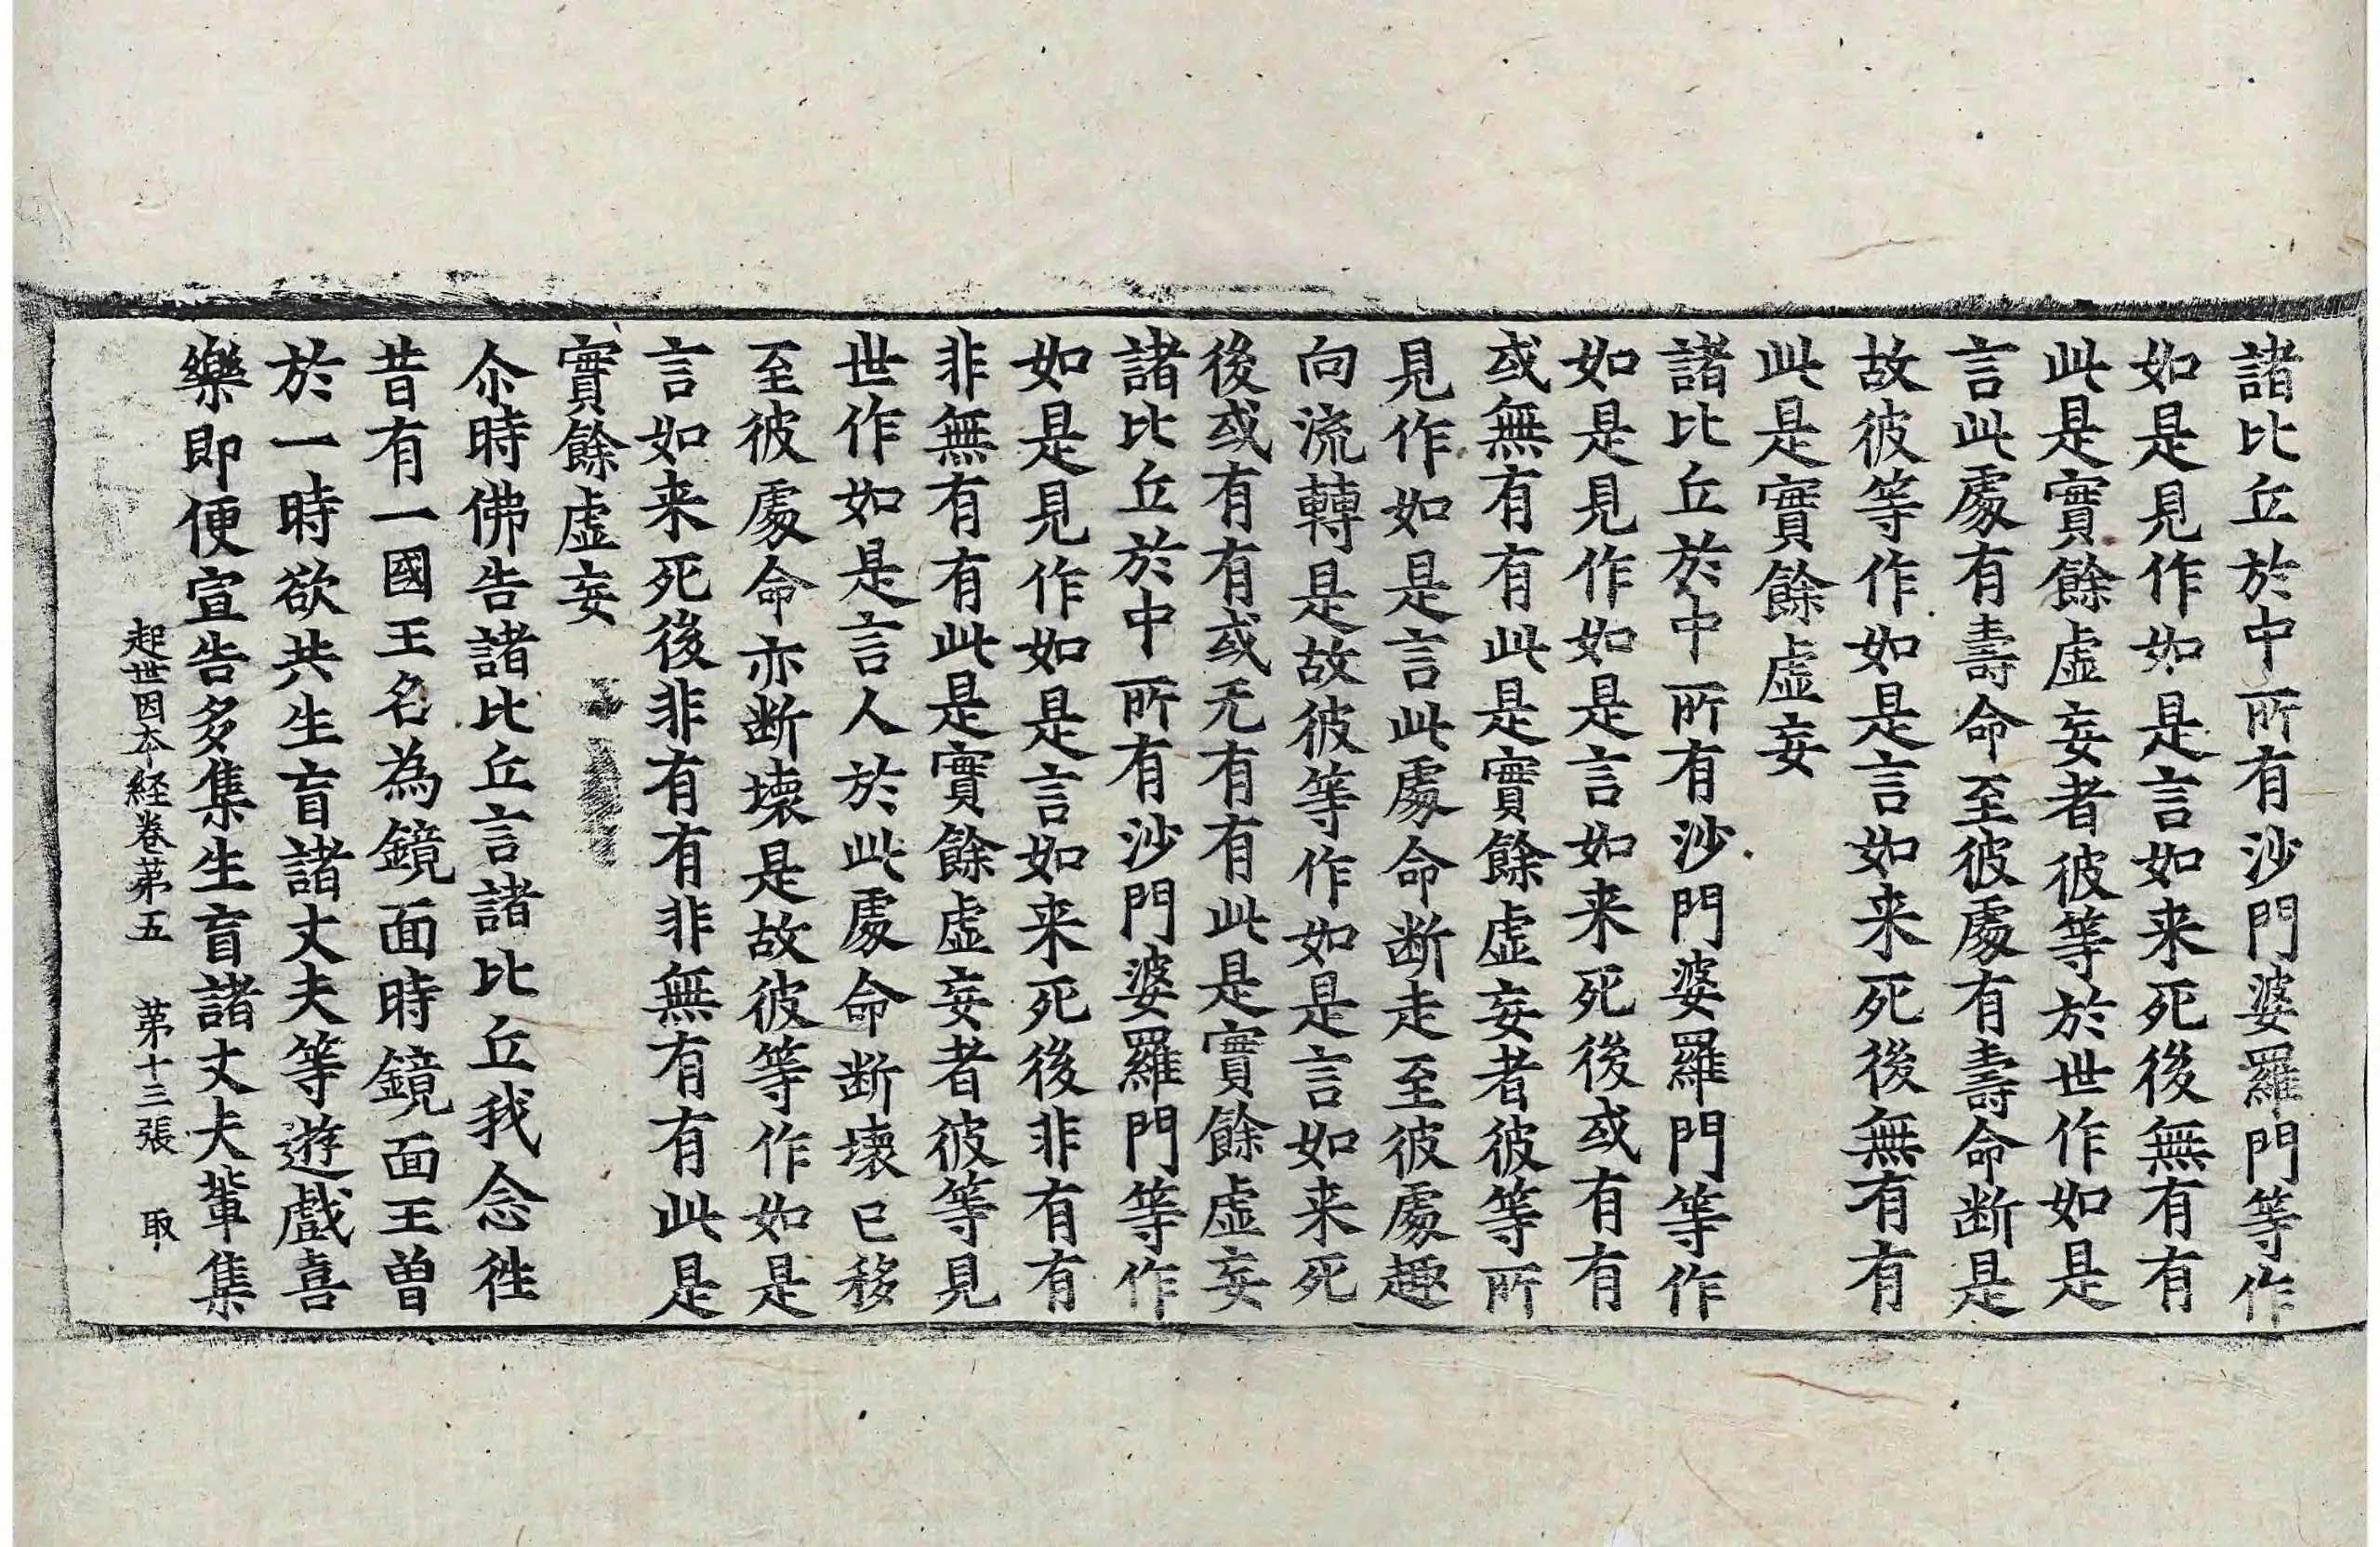 諸比丘於中所有沙門婆羅門等作
如是見作如是言如来死後無有有
此是實餘虛妄者彼等於世作如是
言此處有壽命至彼處有壽命断是
故彼等作如是言如来死後無有有
此是實餘虛妄
諸比丘於中所有沙門婆羅門等作
如是見作如是言如来死後或有有
或無有有此是實餘虛妄者彼等所
見作如是言此處命断走至彼處趣
向流轉是故彼等作如是言如来死
後或有有或无有有此是實餘虛妄
諸比丘於中所有沙門婆羅門等作
如是見作如是言如来死後非有有
非無有有此是實餘虛妄者彼等見
世作如是言人於此處命断壞已移
至彼處命亦断壞是故彼等作如是
言如来死後非有有非無有有此是
實餘虛妄
尒時佛告諸比丘言諸比丘我念徃
昔有一國王名為鏡面時鏡面王曽
於一時欲共生盲諸丈夫等遊戲喜
樂即便宣告多集生盲諸丈夫輩集
起世因本経卷苐五 苐十三張 取